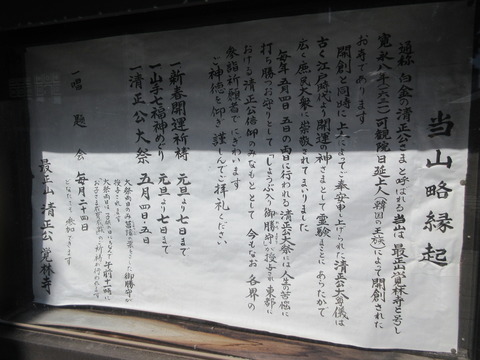 当山略縁起
通称 白金の清正公さまと呼ばれる当山は 最正山覚林寺と号し
寛永八年(一六三一)可観院日延上人(韓国の王族)によって開創された
お寺であります
開創と同時に上人によってご奉安申し上げられた清正公大尊儀は
古く江戸時代より開運の神さまとして霊験まことにあらたかで
広く庶民大衆に崇敬されてまいりました
毎年五月四日 五日の両日に行われる清正公大祭には人生の苦悩に
打ち勝つお守りとして「しょうぶ入り御勝守」が授与され 東都に
おける清正公信仰のみなもととして 今もなお各界の
参詣祈願者でにぎわいます
ご神徳を仰ぎ謹んでご拝礼ください
一新春開運祈祷 元旦より七日まで
一山手七福神めぐり 元旦より七日まで
一清正公大祭 五月四日・五日
大祭両日のみ菖蒲の葉の入った御勝守が
授与されます
一唱題会 毎月二十四日
どなたでも参加できます
最正山 清正公 覚林寺